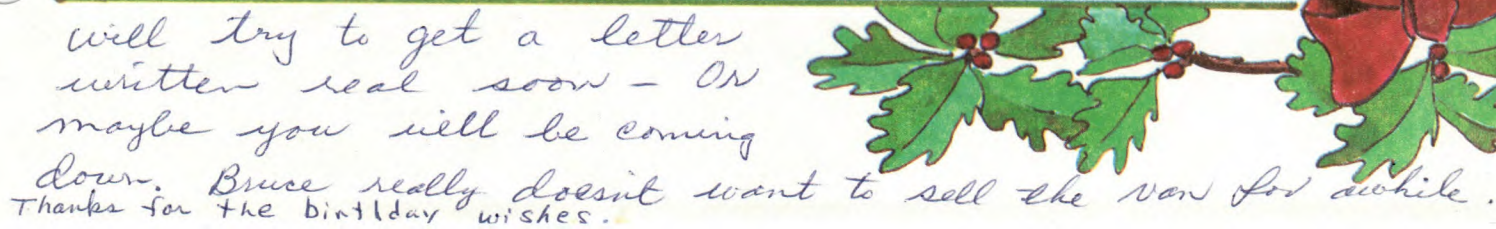 will try to get a letter
written real soon - Or
maybe you will be coming
down. Bruce really doesn't want to sell the van for awhile.
Thanks for the birtlday wishes.